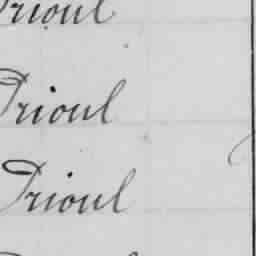 Drioul
Drioul
Drioul